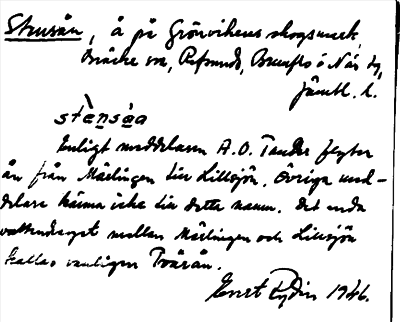 Strusån, å på Grönvikens skogsmark,
Bräcke sn, Refsunds, Brunflo o Näs dg,
Jämtl. l.
stènsa̤a
Enligt meddelaren A.O. Tander flyter
ån från Märlingen till Lillsjön. Övriga med-
delare känna icke till detta namn. Det enda
vattendraget mellan Märlingen och Lillsjön
kallas vanligen Tvärån.
Ernst Rydin 1946.